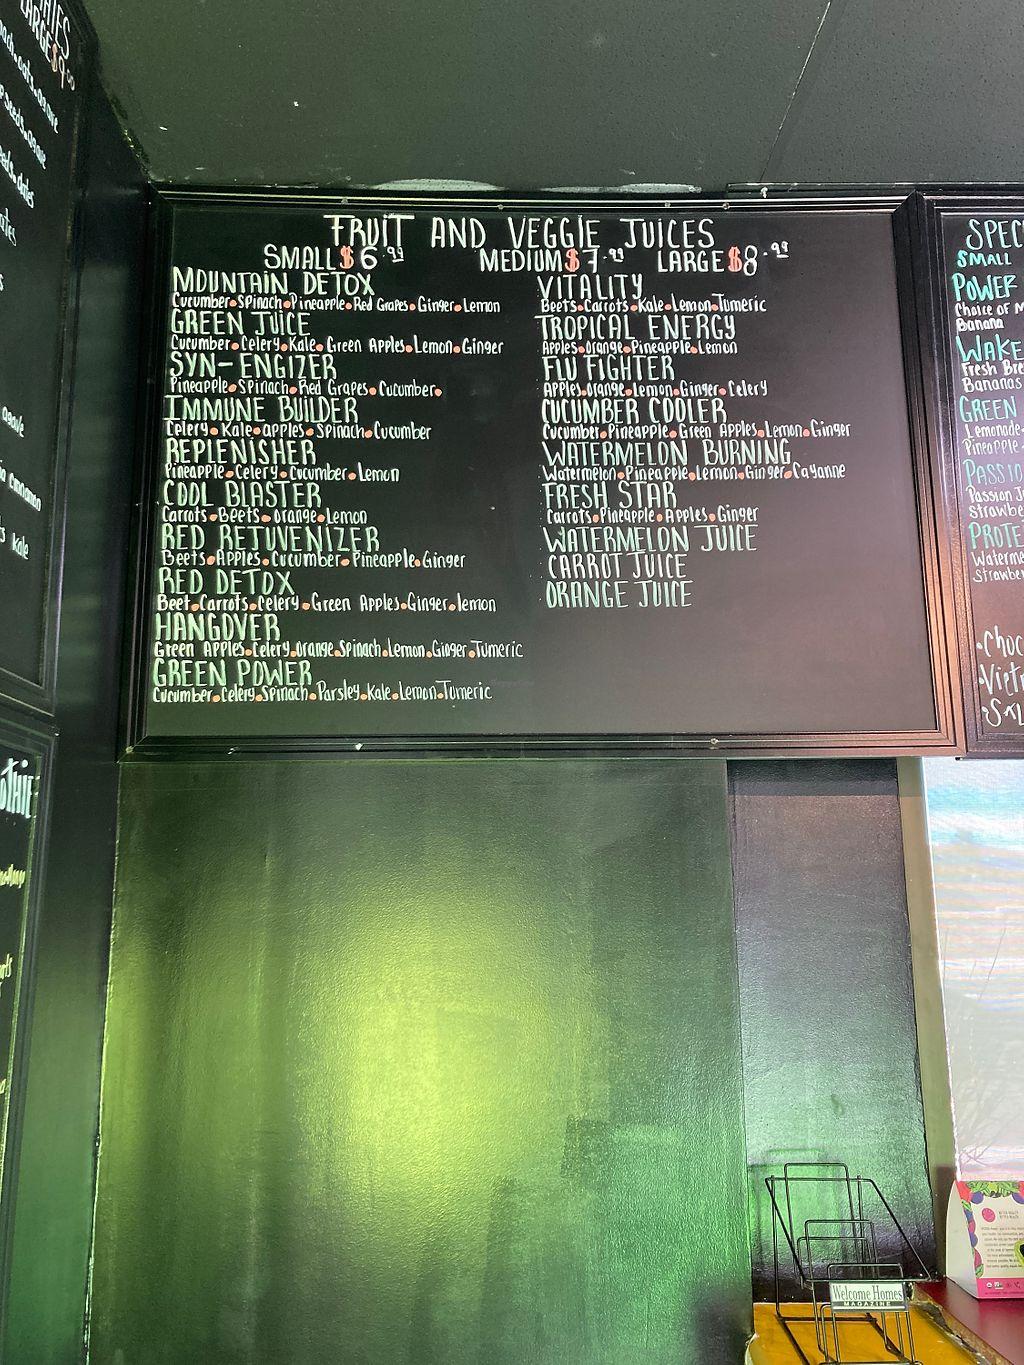 LARGE $9.00
agave
dates
agave
cinnamon
kale
FRUIT AND VEGGIE JUICES
SMALL $6.99 MEDIUM $7.99 LARGE $8.99
MOUNTAIN DETOX
Cucumber•Spinach•Pineapple•Red Grapes•Ginger•Lemon
GREEN JUICE
Cucumber•Celery•Kale•Green Apples•Lemon•Ginger
SYN-ENGIZER
Pineapple•Spinach•Red Grapes•Cucumber•
IMMUNE BUILDER
Celery•Kale•apples•Spinach•Cucumber
REPLENISHER
Pineapple•Celery•Cucumber•Lemon
COOL BLASTER
Carrots•Beets•orange•Lemon
RED REJUVENIZER
Beets•Apples•Cucumber•Pineapple•Ginger
RED DETOX
Beet•Carrots•Celery•Green Apples•Ginger•lemon
HANGOVER
Green Apples•Celery•orange•Spinach•Lemon•Ginger•Tumeric
GREEN POWER
Cucumber•Celery•Spinach•Parsley•Kale•Lemon•Tumeric
VITALITY
Beets•Carrots•Kale•Lemon•Tumeric
TROPICAL ENERGY
Apples•Orange•Pineapple•Lemon
FLU FIGHTER
Apples•orange•Lemon•Ginger•Celery
CUCUMBER COOLER
Cucumber•Pineapple•Green Apples•Lemon•Ginger
WATERMELON BURNING
Watermelon•Pineapple•Lemon•Ginger•Cayanne
FRESH STAR
Carrots•Pineapple•Apples•Ginger
WATERMELON JUICE
CARROT JUICE
ORANGE JUICE
SPEC
SMALL
POWER
Choice of M
Banana
WAKE
Fresh Bre
Bananas
GREEN
Lemonade
Pineapple
PASSIO
Passion J
Strawbe
PROTE
Waterme
Strawber
•Choc
•Vietn
Welcome Homes
MAGAZINE